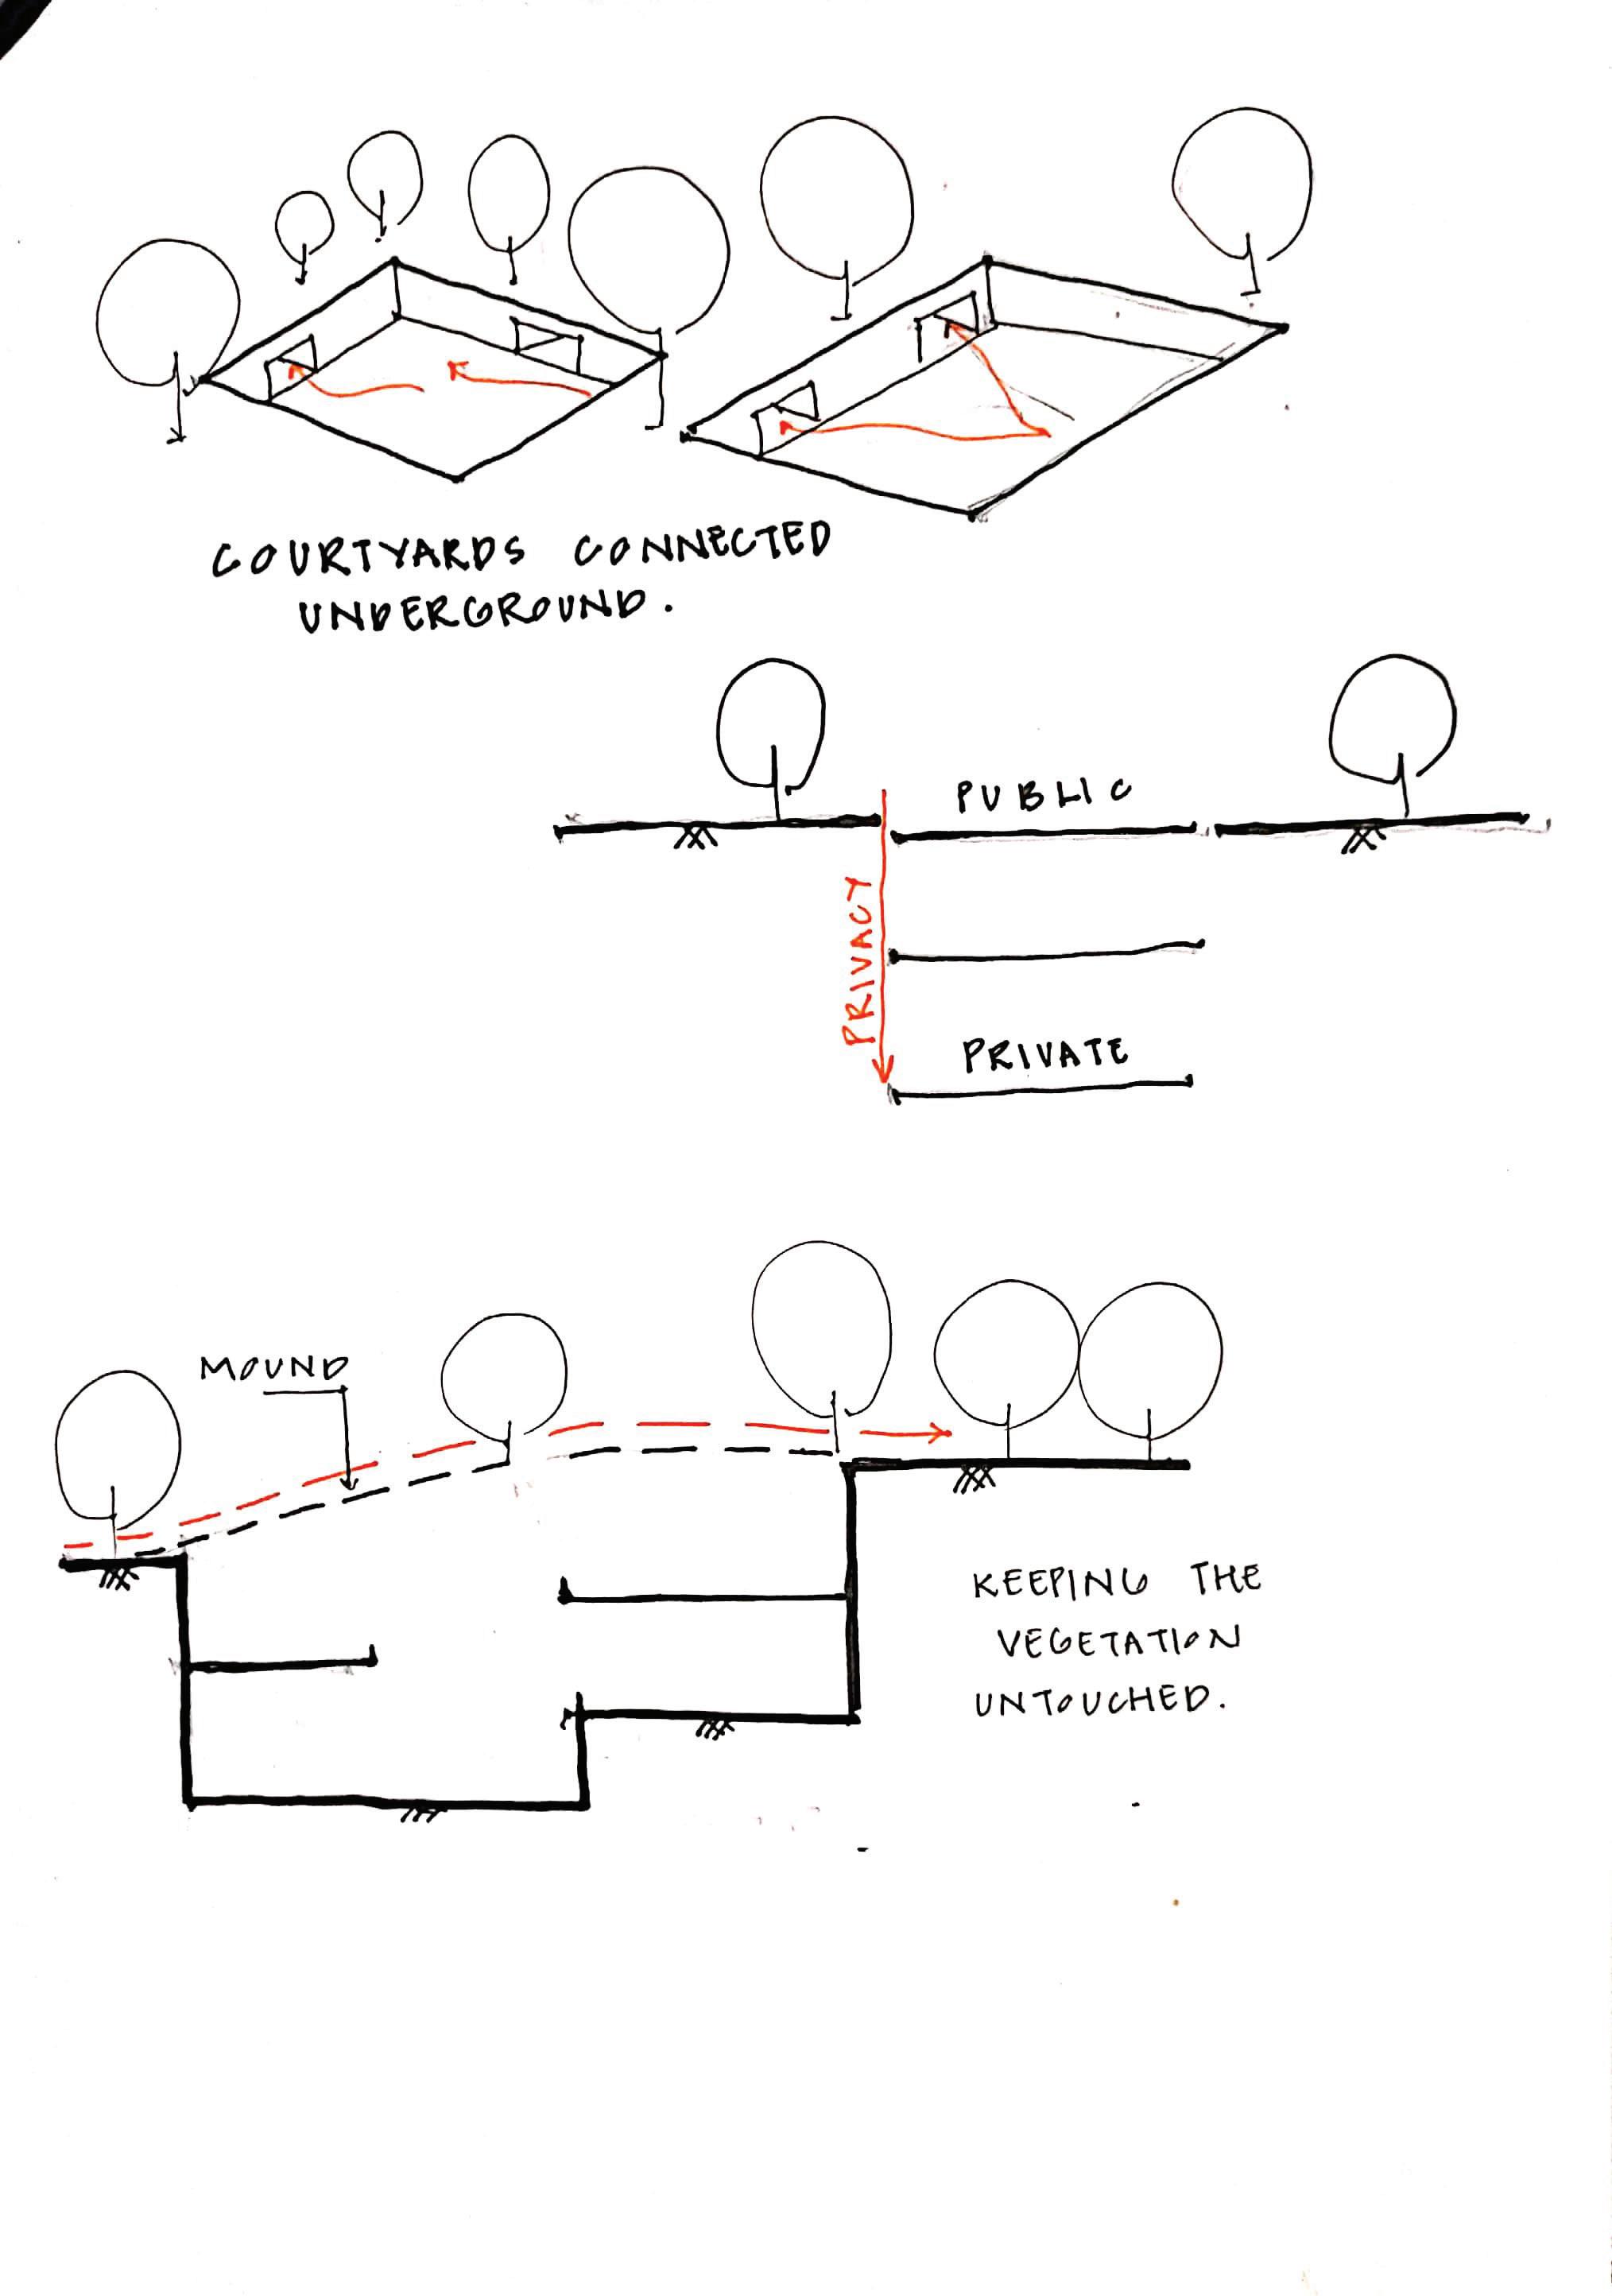 COURTYARDS CONNECTED
UNDERGROUND.
PUBLIC
PRIVACY
PRIVATE
MOUND
KEEPING THE
VEGETATION
UNTOUCHED.